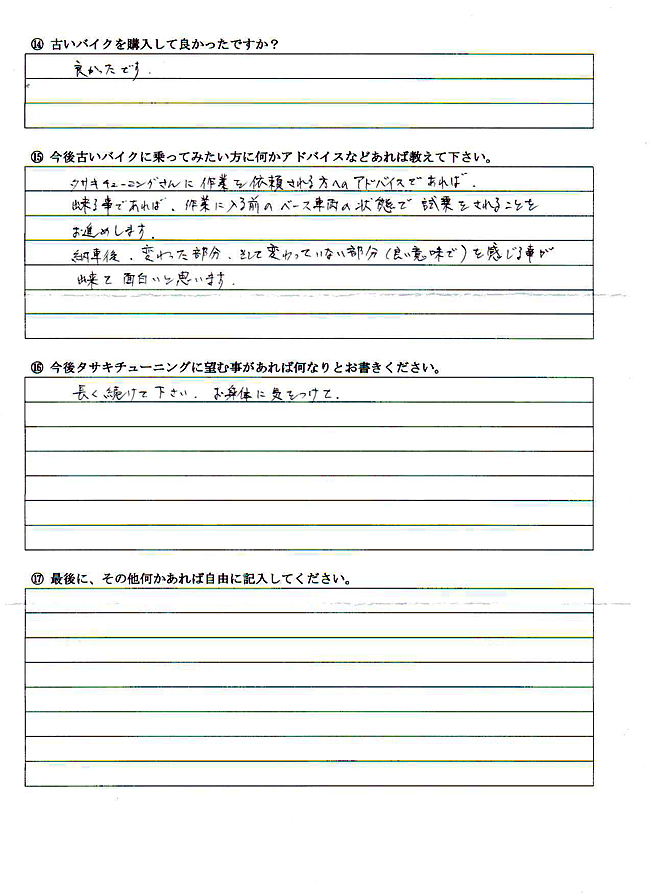 ⑭ 古いバイクを購入して良かったですか？
良かったです.
⑮ 今後古いバイクに乗ってみたい方に何かアドバイスなどあれば教えて下さい。
タサキチューニングさんに作業を依頼される方へのアドバイスであれば.
出来る事であれば、作業に入る前のベース車両の状態で試乗をされることを
お進めします.
納車後、変わった部分、そして変わっていない部分(良い意味で)を感じる事が
出来て面白いと思います.
⑯ 今後タサキチューニングに望む事があれば何なりとお書きください。
長く続けて下さい. お身体に気をつけて.
⑰ 最後に、その他何かあれば自由に記入してください。